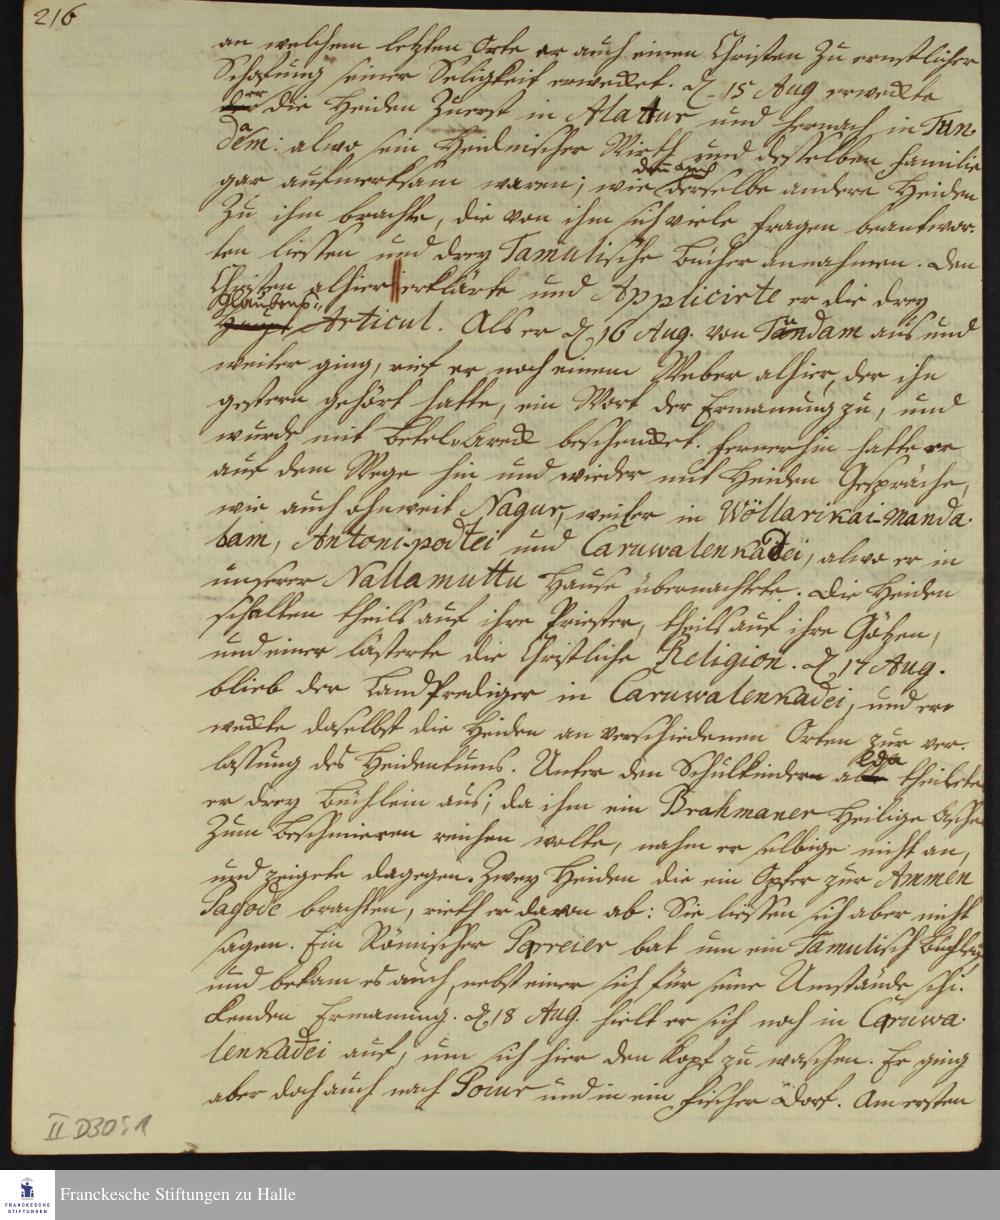 216
an welchem letzten Orte er auch einen Christen zu ernstlicher
Schaffung seiner Seligkeit erweckt. d. 15 Aug erweckte
er die Heiden zuerst in Alattur und hernach in Tan
dam: alwo sein Heidnischer Wirth und desselben Familie
gar aufmerksam waren; wie denn auch derselbe andere Heiden
zu ihm brachte, die von ihm sich viele Fragen beantwor-
ten liessen und drey Tamulische Bücher annahmen. Den
Christen alhier erklärte und Applicirte er die drey
Glaubens- Articul. Als er d. 16 Aug. von Tandam aus und
weiter ging, rief er noch einem Weber alhier, der ihn
gestern gehört hatte, ein Wort der Ermanung zu, und
wurde mit Betel-Areck beschencket. Fernerhin hatte er
auf dem Wege hin und wieder mit Heiden Gespräche,
wie auch ohnweit Nagur, weiter in Wöllarikai-Manda-
bam, Antoni-podtei und Caruwalenkadei, alwo er in
unserer Nallamuttu Hause übernachtete. Die Heiden
schalten theils auf ihre Priester, theils auf ihre Götzen,
und einer lästerte die Christliche Religion. d. 17 Aug.
blieb der Landprediger in Caruwalenkadei, und er-
weckte daselbst die Heiden an verschiedenen Orten zur ver-
lassung des Heidentums. Unter den Schulkindern alda theilete
er drey Büchlein aus; da ihm ein Brahmaner Heilige Asche
zum Beschmieren reichen wolte, nahm er selbige nicht an,
und zeigete dagegen. Zwey Heiden die ein Opfer zur Ammen
Pagode brachten, rieth er davon ab: Sie liessen sich aber nicht
sagen. Ein Römischer Parreier bat um ein Tamulisch Büchlein
und bekam es auch, nebst einer sich für seine Umstände schi-
kenden Ermanung. d. 18 Aug. hielt er sich noch in Caruwa-
lenkadei auf, um sich hier den Kopf zu waschen. Er ging
aber doch auch nach Porur und in ein Fischer Dorf. Am ersten
II D 30 : 1
FRANCKESCHE
STIFTUNGEN
Franckesche Stiftungen zu Halle